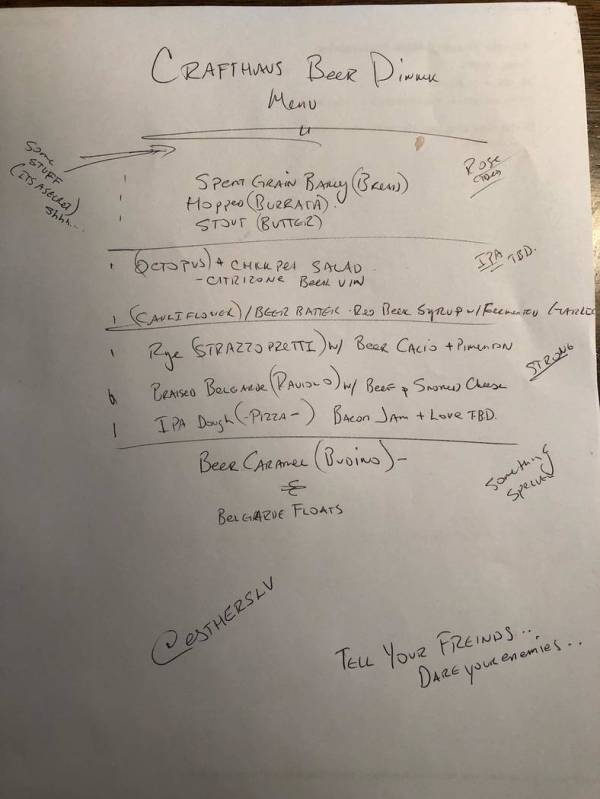 CRAFTHAUS BEER DINNER
MENU
SOME
STUFF
(ITS A SECRET)
Shhh...
ROSE
SPENT GRAIN BARLEY (BREAD)
HOPPED (BURRATA)
STOUT (BUTTER)
(OCTOPUS) + CHICK PEA SALAD
- CITRIZONE BEER VIN
IPA TBD.
(CAULIFLOWER) / BEER BATTER - RED BEER SYRUP w/ FERMENTED GARLIC
Rye (STRAZZOPRETTI) w/ BEER CACIO + PIMENTON
STRONG
BRAISED BELGARDE (RAVIOLO) w/ BEEF & SMOKED CHEESE
IPA Dough (-PIZZA-) BACON JAM + LOVE TBD.
BEER CARAMEL (BUDINO) -
&
BELGARDE FLOATS
Something
Special
@ESTHERSLV
TELL YOUR FREINDS...
DARE YOUR ENEMIES...